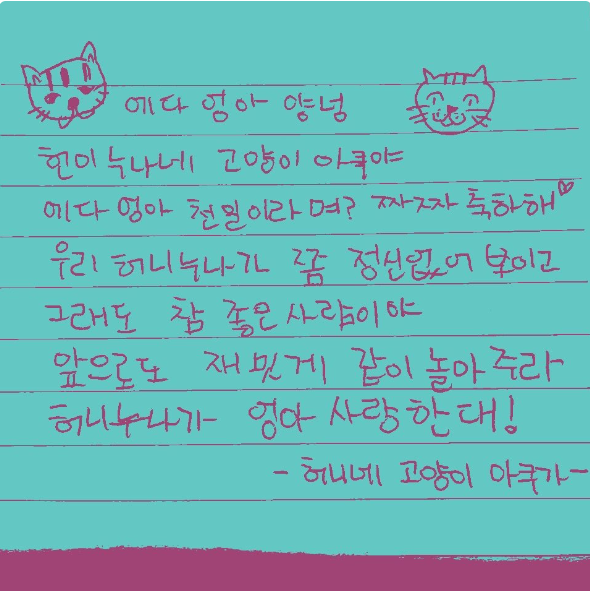 에다 엉아 양녕
헌이누나네 고양이 아쿠야
에다 엉아 천일이라며? 짜자자 축하해
우리 허니누나가 쫌 정신없어 보이고
그래도 참 좋은 사람이야
앞으로도 재밌게 같이 놀아주라
허니누나가 엉아 사랑한대!
- 허니네 고양이 아쿠가 -